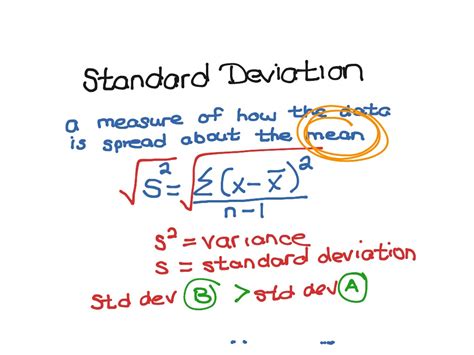 Standard Deviation
a measure of how the data
is spread about the mean
√s² = √Σ(x-x̄)²/n-1
s² = variance
s = standard deviation
std dev B > std dev A